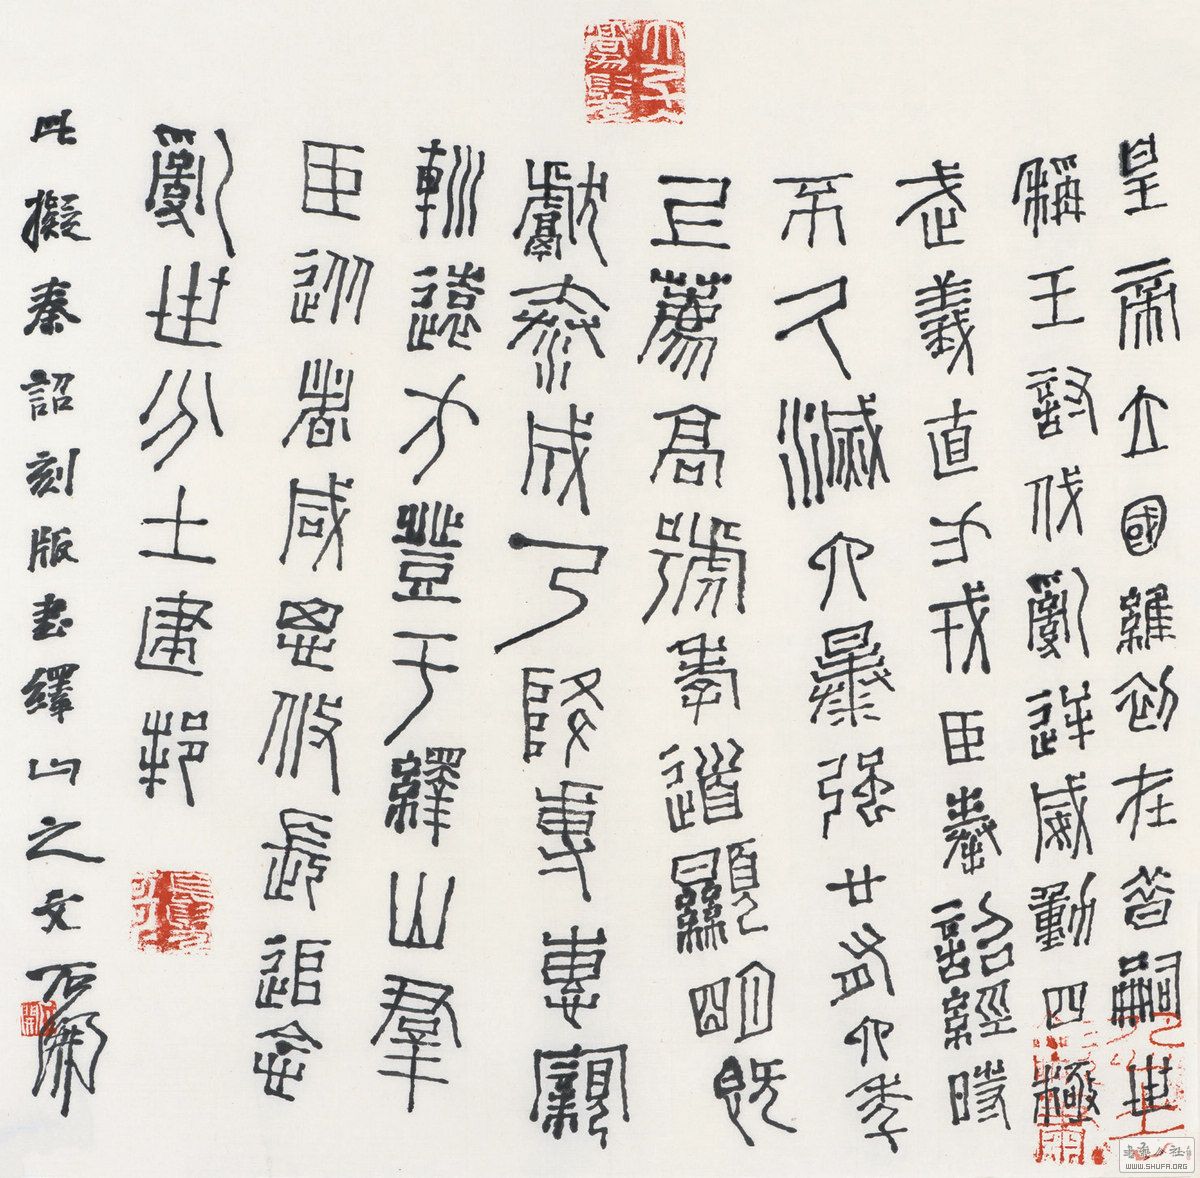 皇帝立國維初在昔嗣世
稱王討伐亂逆威動四極
武義直方戎臣奉詔經時
不久滅六暴強廿有六年
上薦高號孝道顯明既
獻泰成乃降專惠親
巡遠方登于繹山羣
臣從者咸思攸長追念
亂世分土建邦
此擬秦詔刻版書繹山之文 石開
WWW.SHUFA.ORG